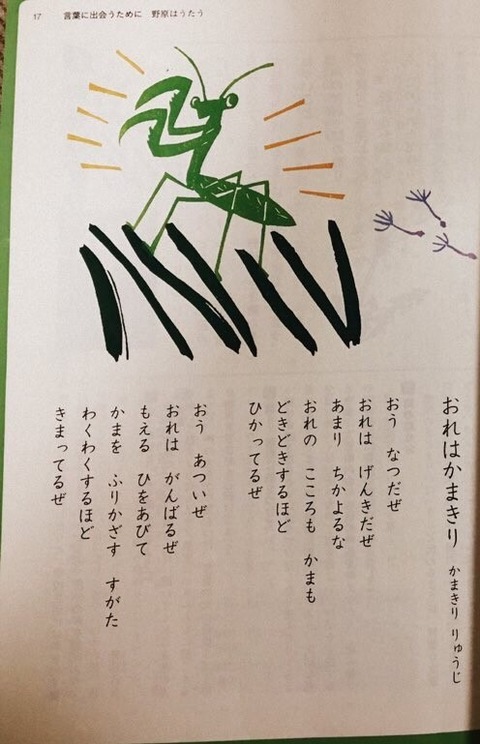 17 言葉に出会うために 野原はうたう
おれはかまきり かまきり りゅうじ
おう なつだぜ
おれは げんきだぜ
あまり ちかよるな
おれの こころも かまも
どきどきするほど
ひかってるぜ
おう あついぜ
おれは がんばるぜ
もえる ひをあびて
かまを ふりかざす すがた
わくわくするほど
きまってるぜ